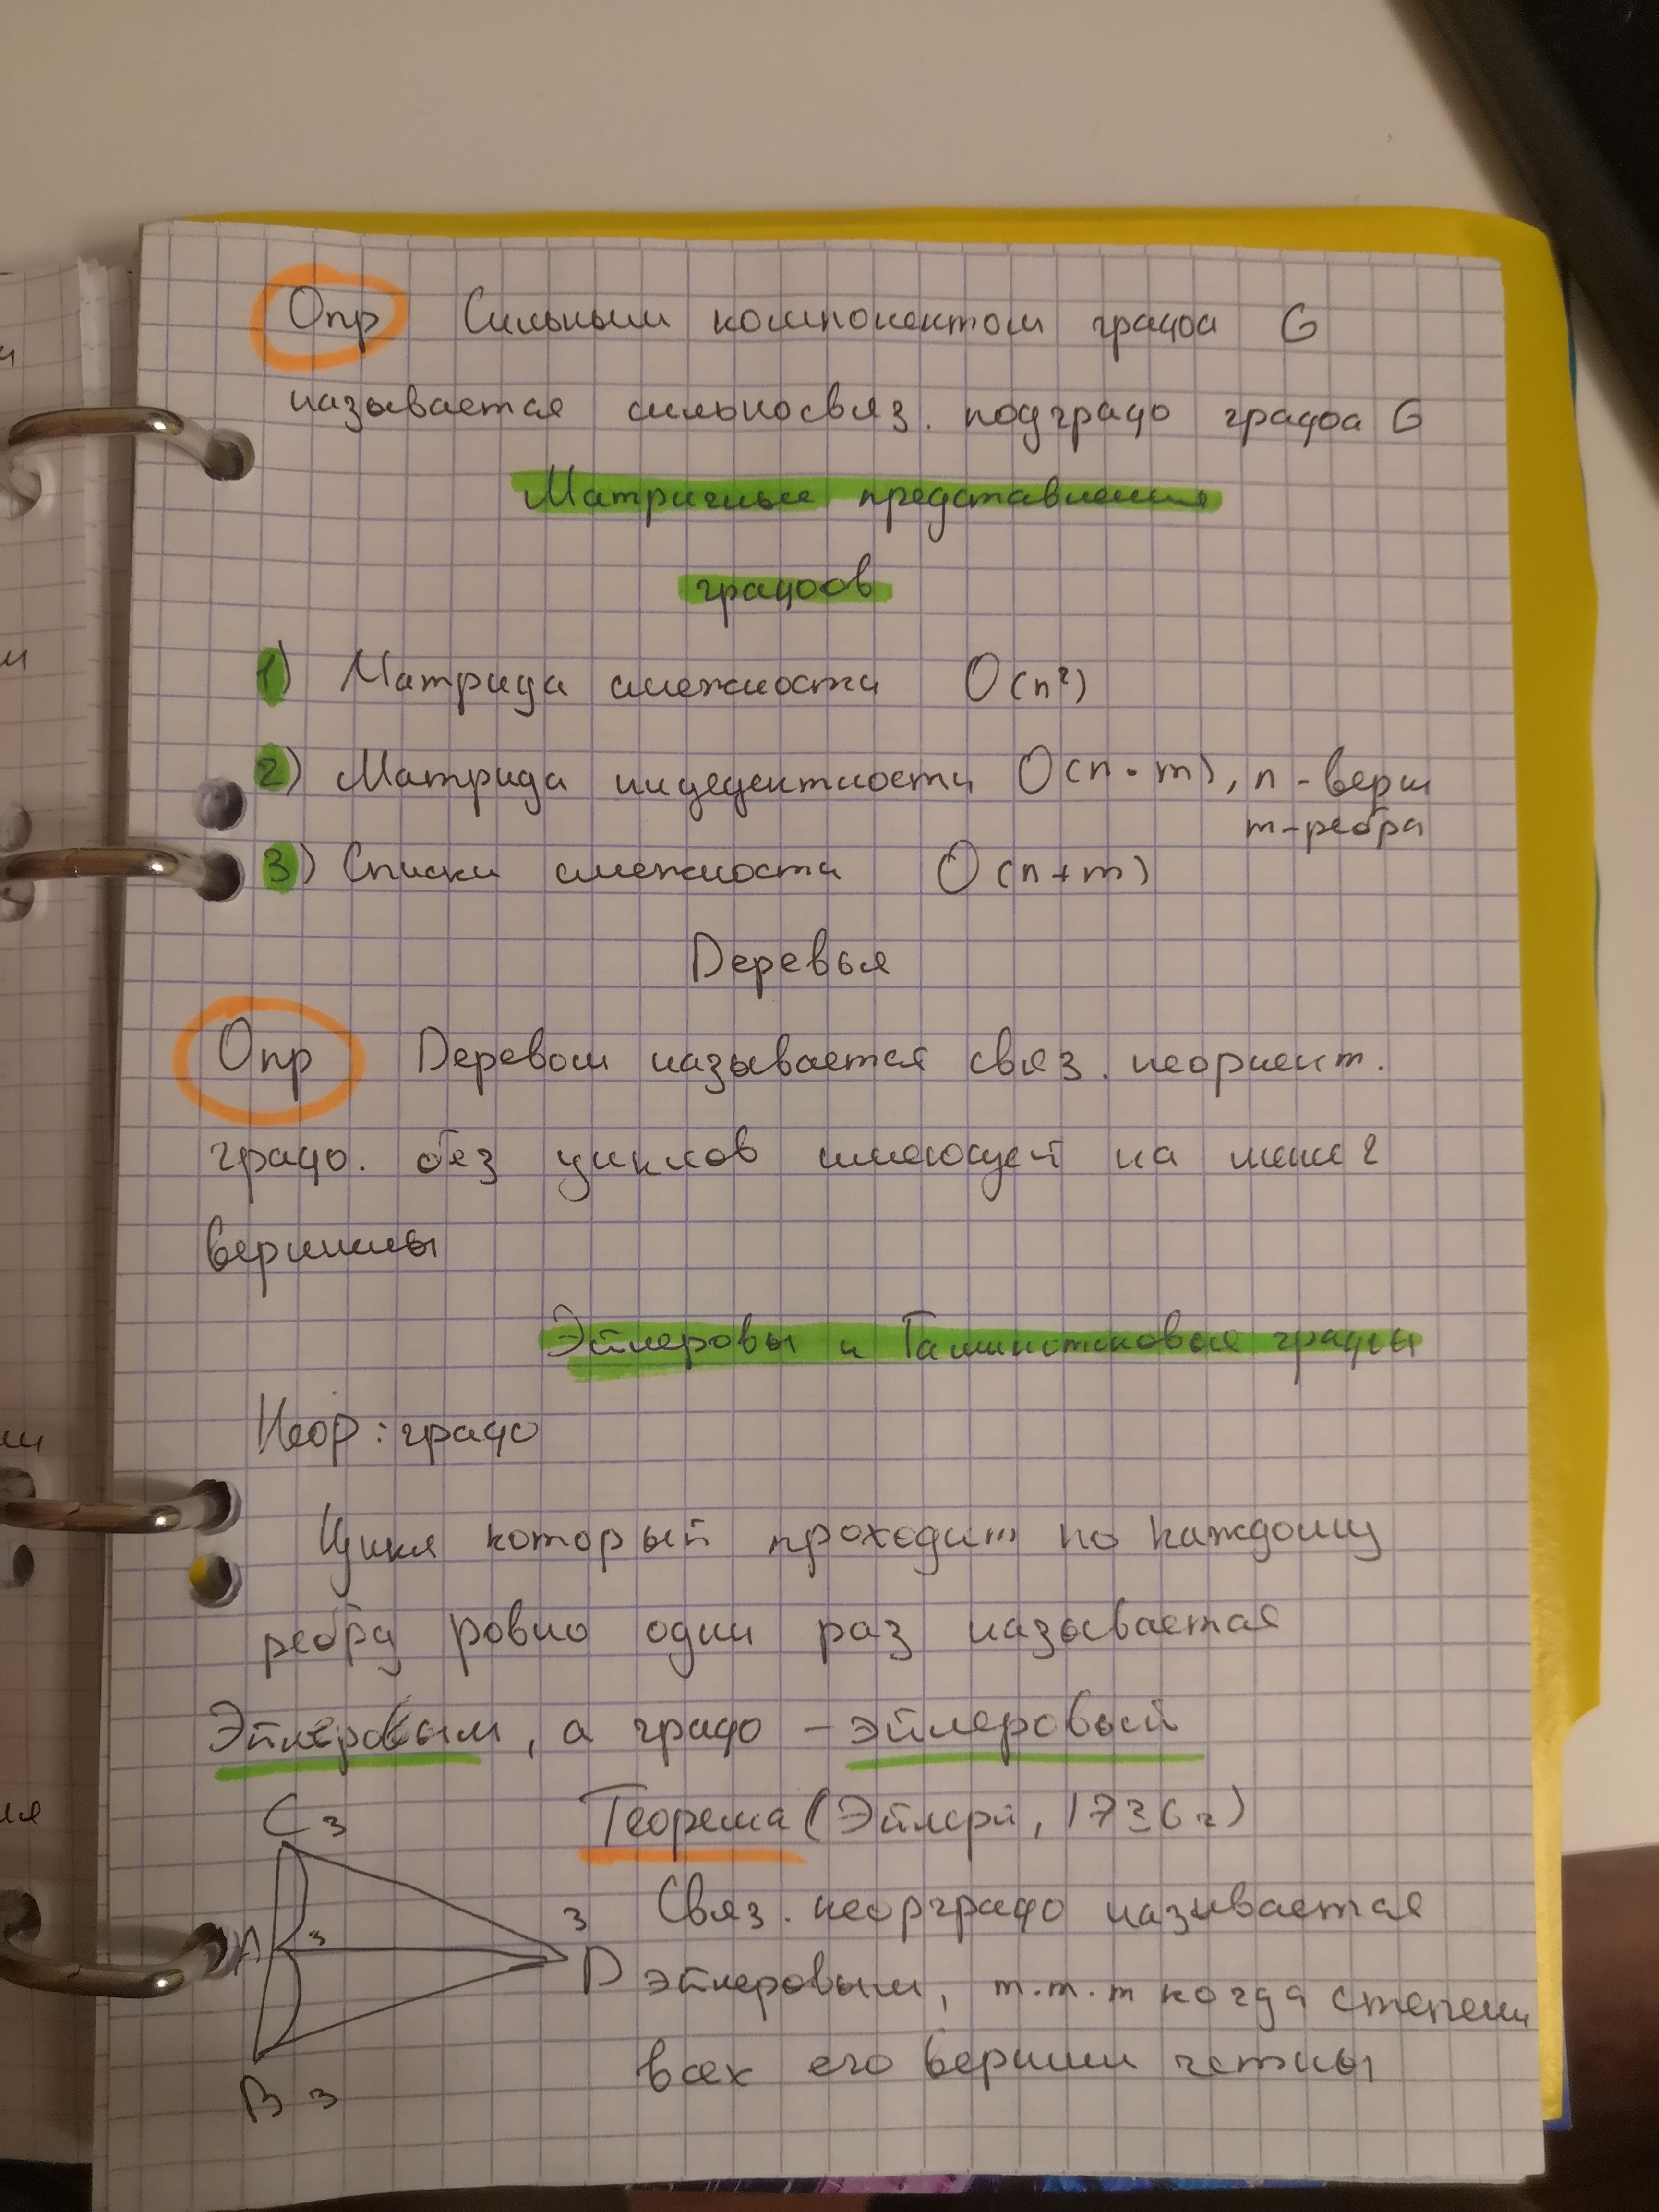 Опр Сильным компонентом графа G
называется сильносвяз. подграф графа G
Матричные представления
графов
1) Матрица смежности O(n²)
2) Матрица индедентности O(n·m), n - верш
m - ребра
3) Списки смежности O(n+m)
Деревья
Опр Деревом называется связ. неориент.
граф. без циклов имеющей на мене 2
вершины
Эйлеровы и Гамильтоновые графы
Неор: граф
Цикл который проходит по каждому
ребру ровно один раз называется
Эйлеровым, а граф - эйлеровый
C 3
Теорема (Эйлер, 1736 г)
A 3
3 D
B 3
Связ. неорграф называется
эйлеровым, т.т.т когда степени
всех его вершин четны